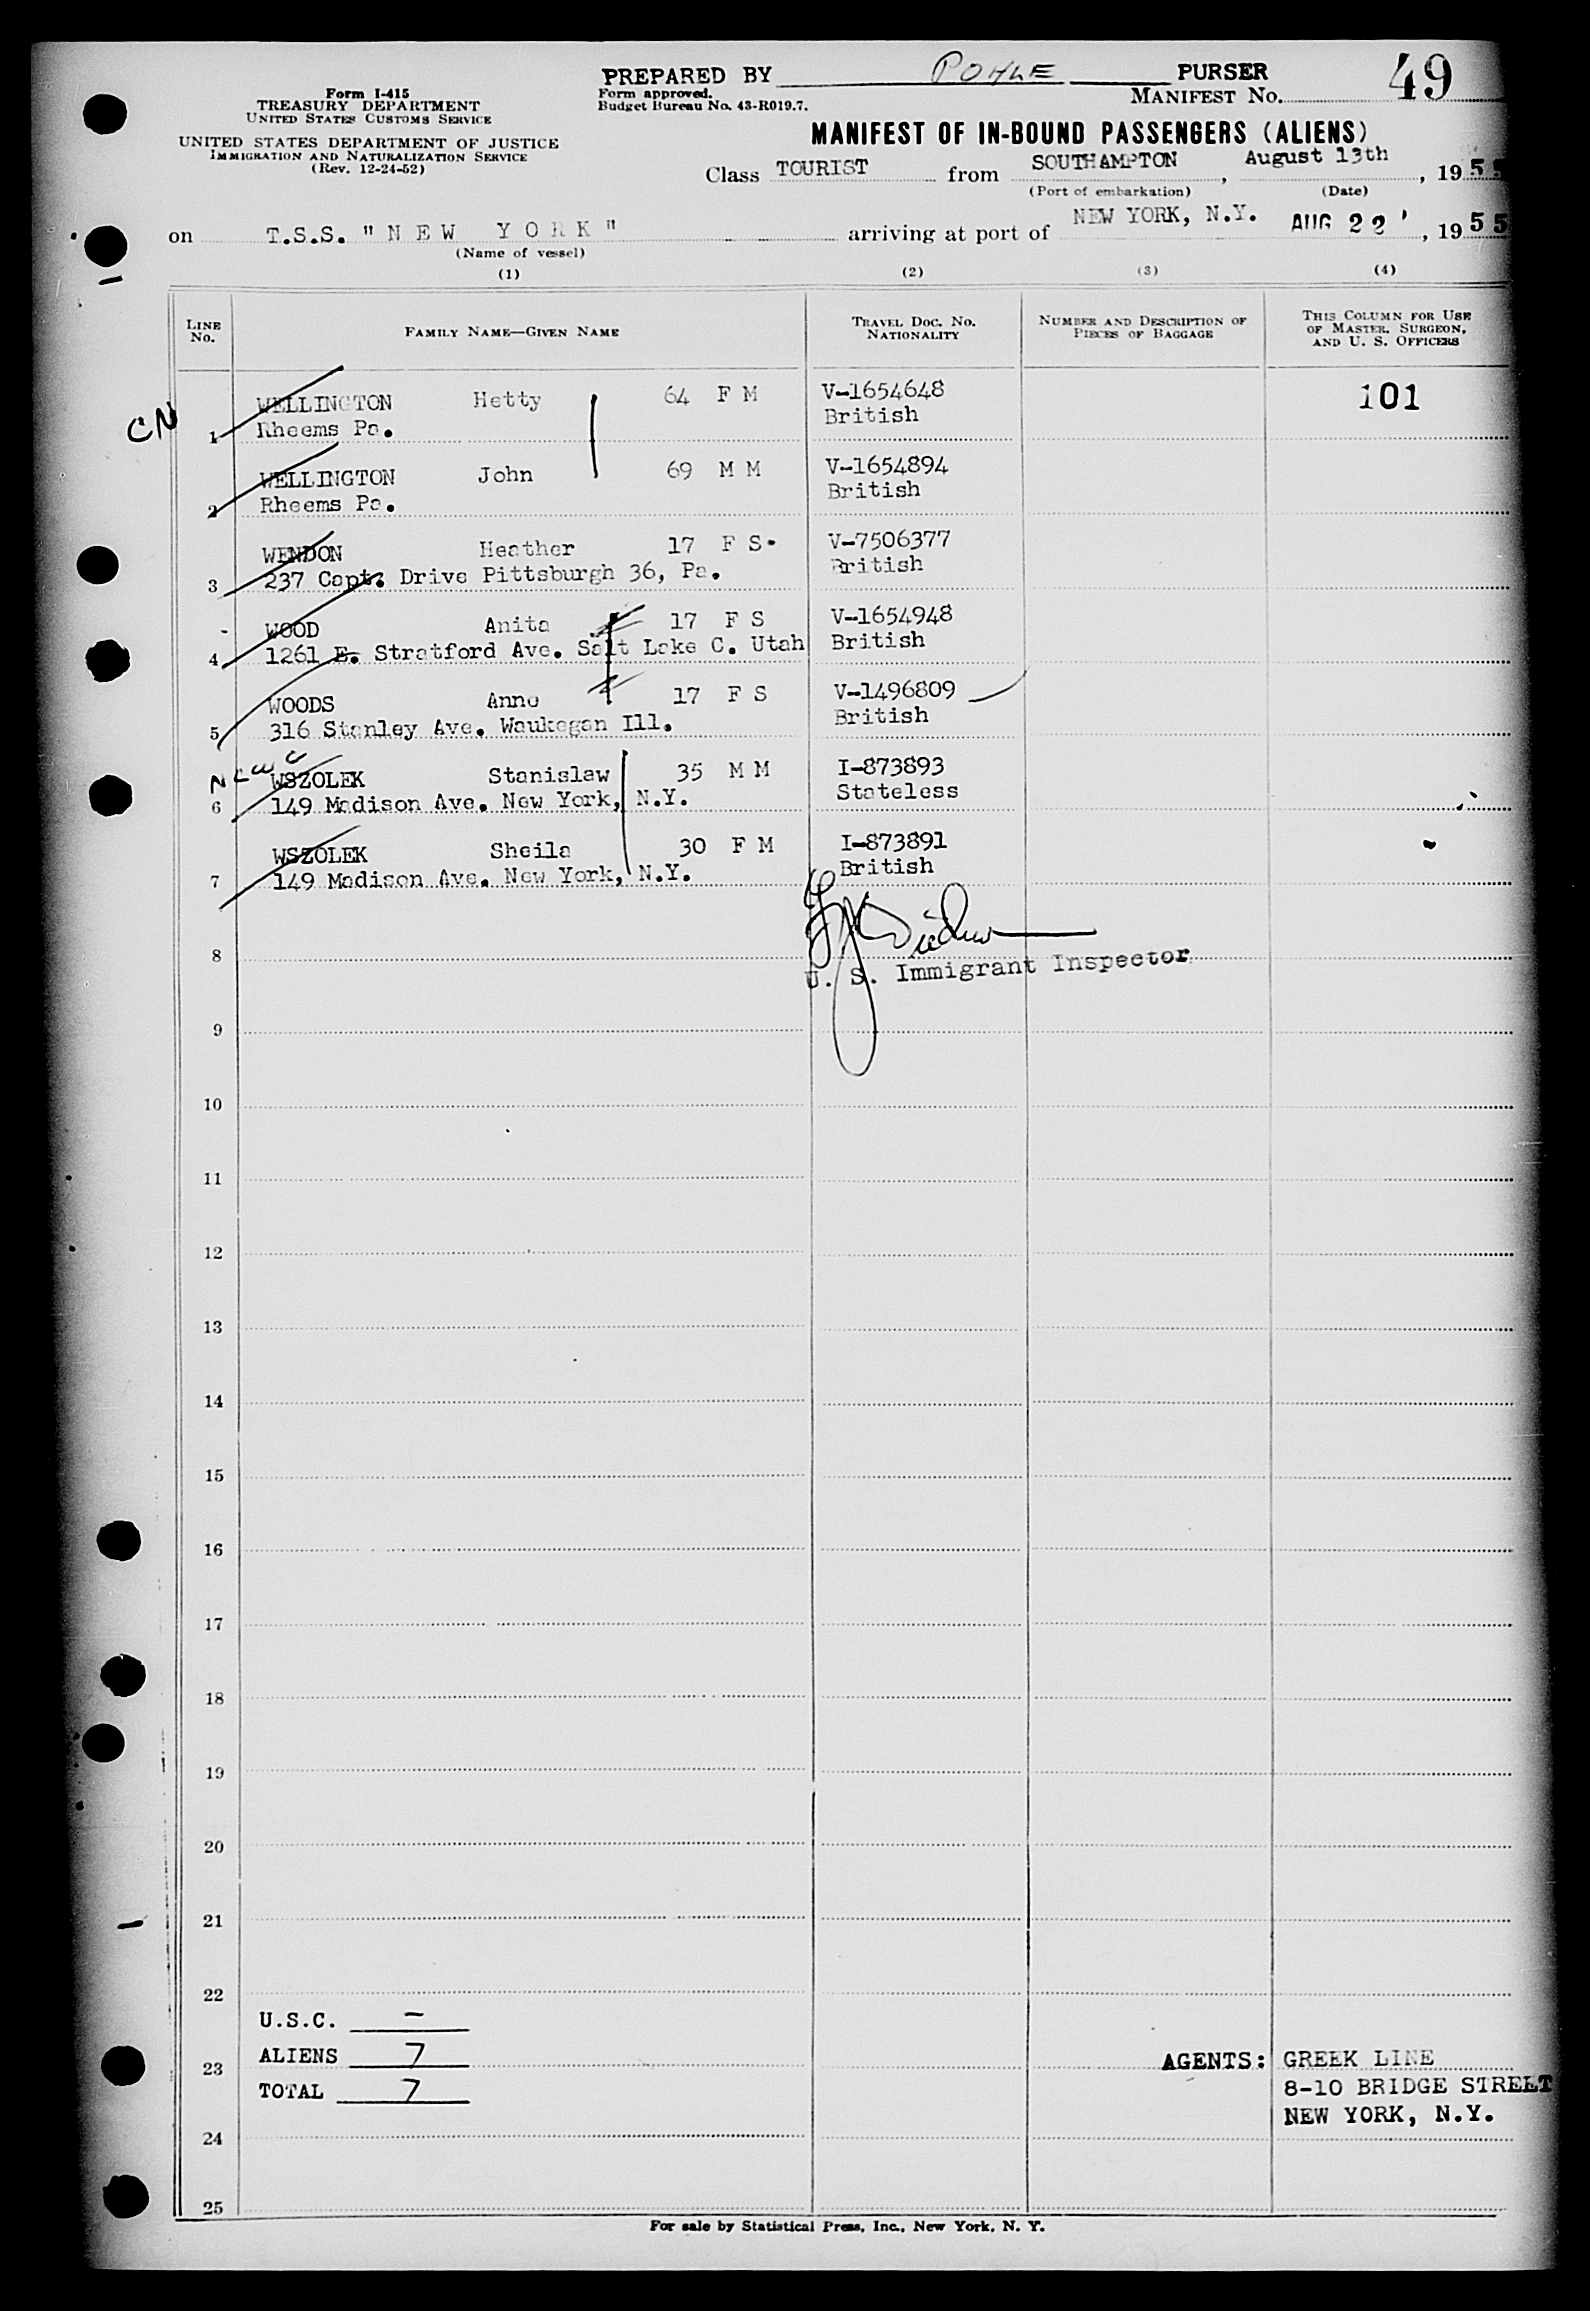 PREPARED BY POHLE PURSER
Form approved.
Budget Bureau No. 43-R019.7.
MANIFEST NO. 49
Form I-415
TREASURY DEPARTMENT
UNITED STATES CUSTOMS SERVICE
UNITED STATES DEPARTMENT OF JUSTICE
IMMIGRATION AND NATURALIZATION SERVICE
(Rev. 12-24-52)
MANIFEST OF IN-BOUND PASSENGERS (ALIENS)
Class TOURIST from SOUTHAMPTON, August 13th, 1955
(Port of embarkation) (Date)
on T.S.S. "NEW YORK" arriving at port of NEW YORK, N.Y. AUG 22, 1955
(Name of vessel)
(1) (2) (3) (4)
LINE NO. FAMILY NAME—GIVEN NAME TRAVEL DOC. NO. NATIONALITY NUMBER AND DESCRIPTION OF PIECES OF BAGGAGE THIS COLUMN FOR USE OF MASTER, SURGEON, AND U. S. OFFICERS
WELLINGTON Hetty 64 F M V-1654648 101
CN 1 Rheems Pa. British
WELLINGTON John 69 M M V-1654894
2 Rheems Pa. British
WENDON Heather 17 F S V-7506377
3 237 Capt. Drive Pittsburgh 36, Pa. British
WOOD Anita 17 F S V-1654948
4 1261 E. Stratford Ave. Salt Lake C. Utah British
WOODS Anne 17 F S V-1496809
5 316 Stanley Ave. Waukegan Ill. British
WSZOLEK Stanislaw 35 M M I-873893
6 149 Madison Ave. New York, N.Y. Stateless
WSZOLEK Sheila 30 F M I-873891
7 149 Madison Ave. New York, N.Y. British
8
U. S. Immigrant Inspector
9
10
11
12
13
14
15
16
17
18
19
20
21
22
U.S.C. –
ALIENS 7
23
TOTAL 7
AGENTS: GREEK LINE
8-10 BRIDGE STREET
NEW YORK, N.Y.
24
25
For sale by Statistical Press, Inc., New York, N. Y.